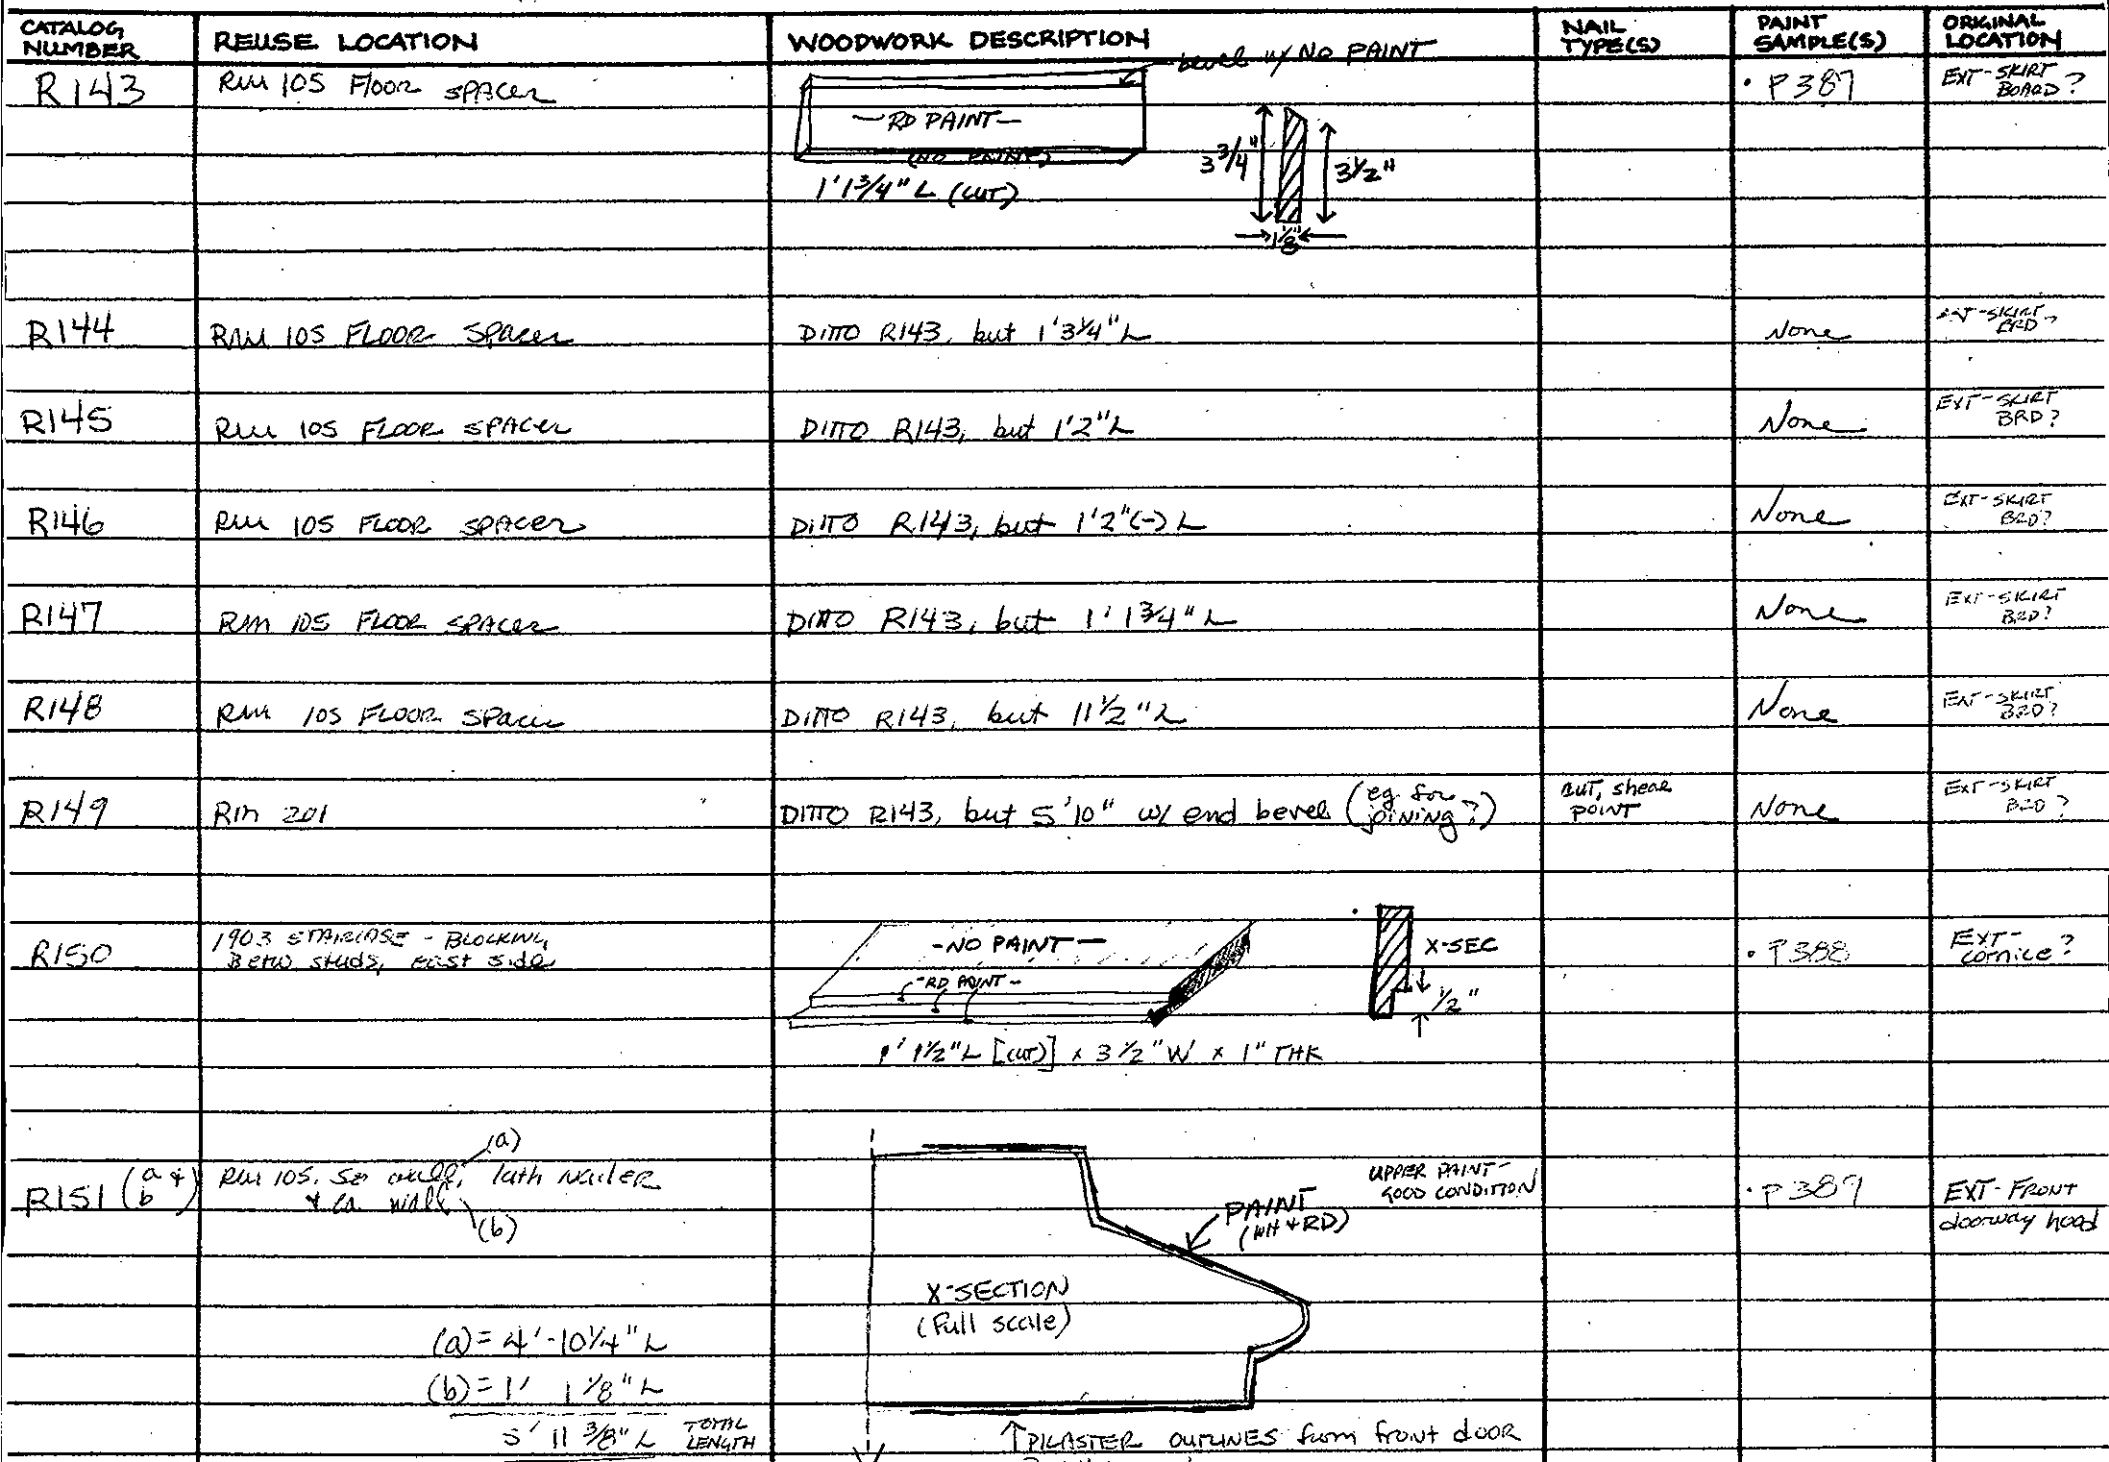 CATALOG NUMBER
REUSE LOCATION
WOODWORK DESCRIPTION
NAIL TYPE(S)
PAINT SAMPLE(S)
ORIGINAL LOCATION
R143
RM 105 Floor spacer
bevel w/ NO PAINT
—RD PAINT—
(NO PAINT)
1'1 3/4" L (CUT)
3 3/4"
3 1/2"
1/8"
• P387
EXT-SKIRT
BOARD?
R144
RM 105 FLOOR Spacer
DITTO R143, but 1'3 1/4" L
None
EXT-SKIRT
BRD?
R145
RM 105 FLOOR SPACER
DITTO R143, but 1'2" L
None
EXT-SKIRT
BRD?
R146
RM 105 FLOOR SPACER
DITTO R143, but 1'2"(-) L
None
EXT-SKIRT
BRD?
R147
RM 105 FLOOR SPACER
DITTO R143, but 1'1 3/4" L
None
EXT-SKIRT
BRD?
R148
RM 105 FLOOR SPACER
DITTO R143, but 11 1/2" L
None
EXT-SKIRT
BRD?
R149
RM 201
DITTO R143, but 5'10" w/ end bevel (eg for joining?)
CUT, shear
POINT
None
EXT-SKIRT
BRD?
R150
1903 STAIRCASE - BLOCKING
Betw studs, east side
-NO PAINT-
-RD PAINT-
X-SEC
1/2"
1' 1 1/2" L [CUT] x 3 1/2" W x 1" THK
• P388
EXT-
cornice?
R151 (a & b)
(a)
RM 105, So wall, lath nailer
& Ea wall
(b)
UPPER PAINT-
GOOD CONDITION
PAINT
(WH & RD)
X-SECTION
(Full scale)
• P389
EXT-FRONT
doorway hood
(a) = 4'-10 1/4" L
(b) = 1' 1 1/8" L
5' 11 3/8" L TOTAL LENGTH
↑PILASTER OUTLINES from front door